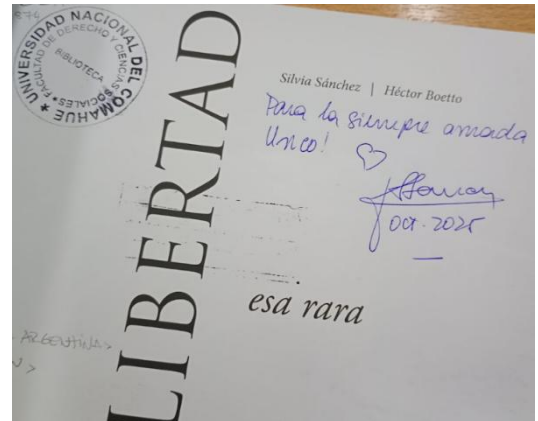 R74
UNIVERSIDAD NACIONAL DEL COMAHUE
FACULTAD DE DERECHO Y CIENCIAS SOCIALES
BIBLIOTECA
LIBERTAD
Silvia Sánchez | Héctor Boetto
Para la siempre amada
Unco!
oct. 2025
esa rara
ARGENTINA>